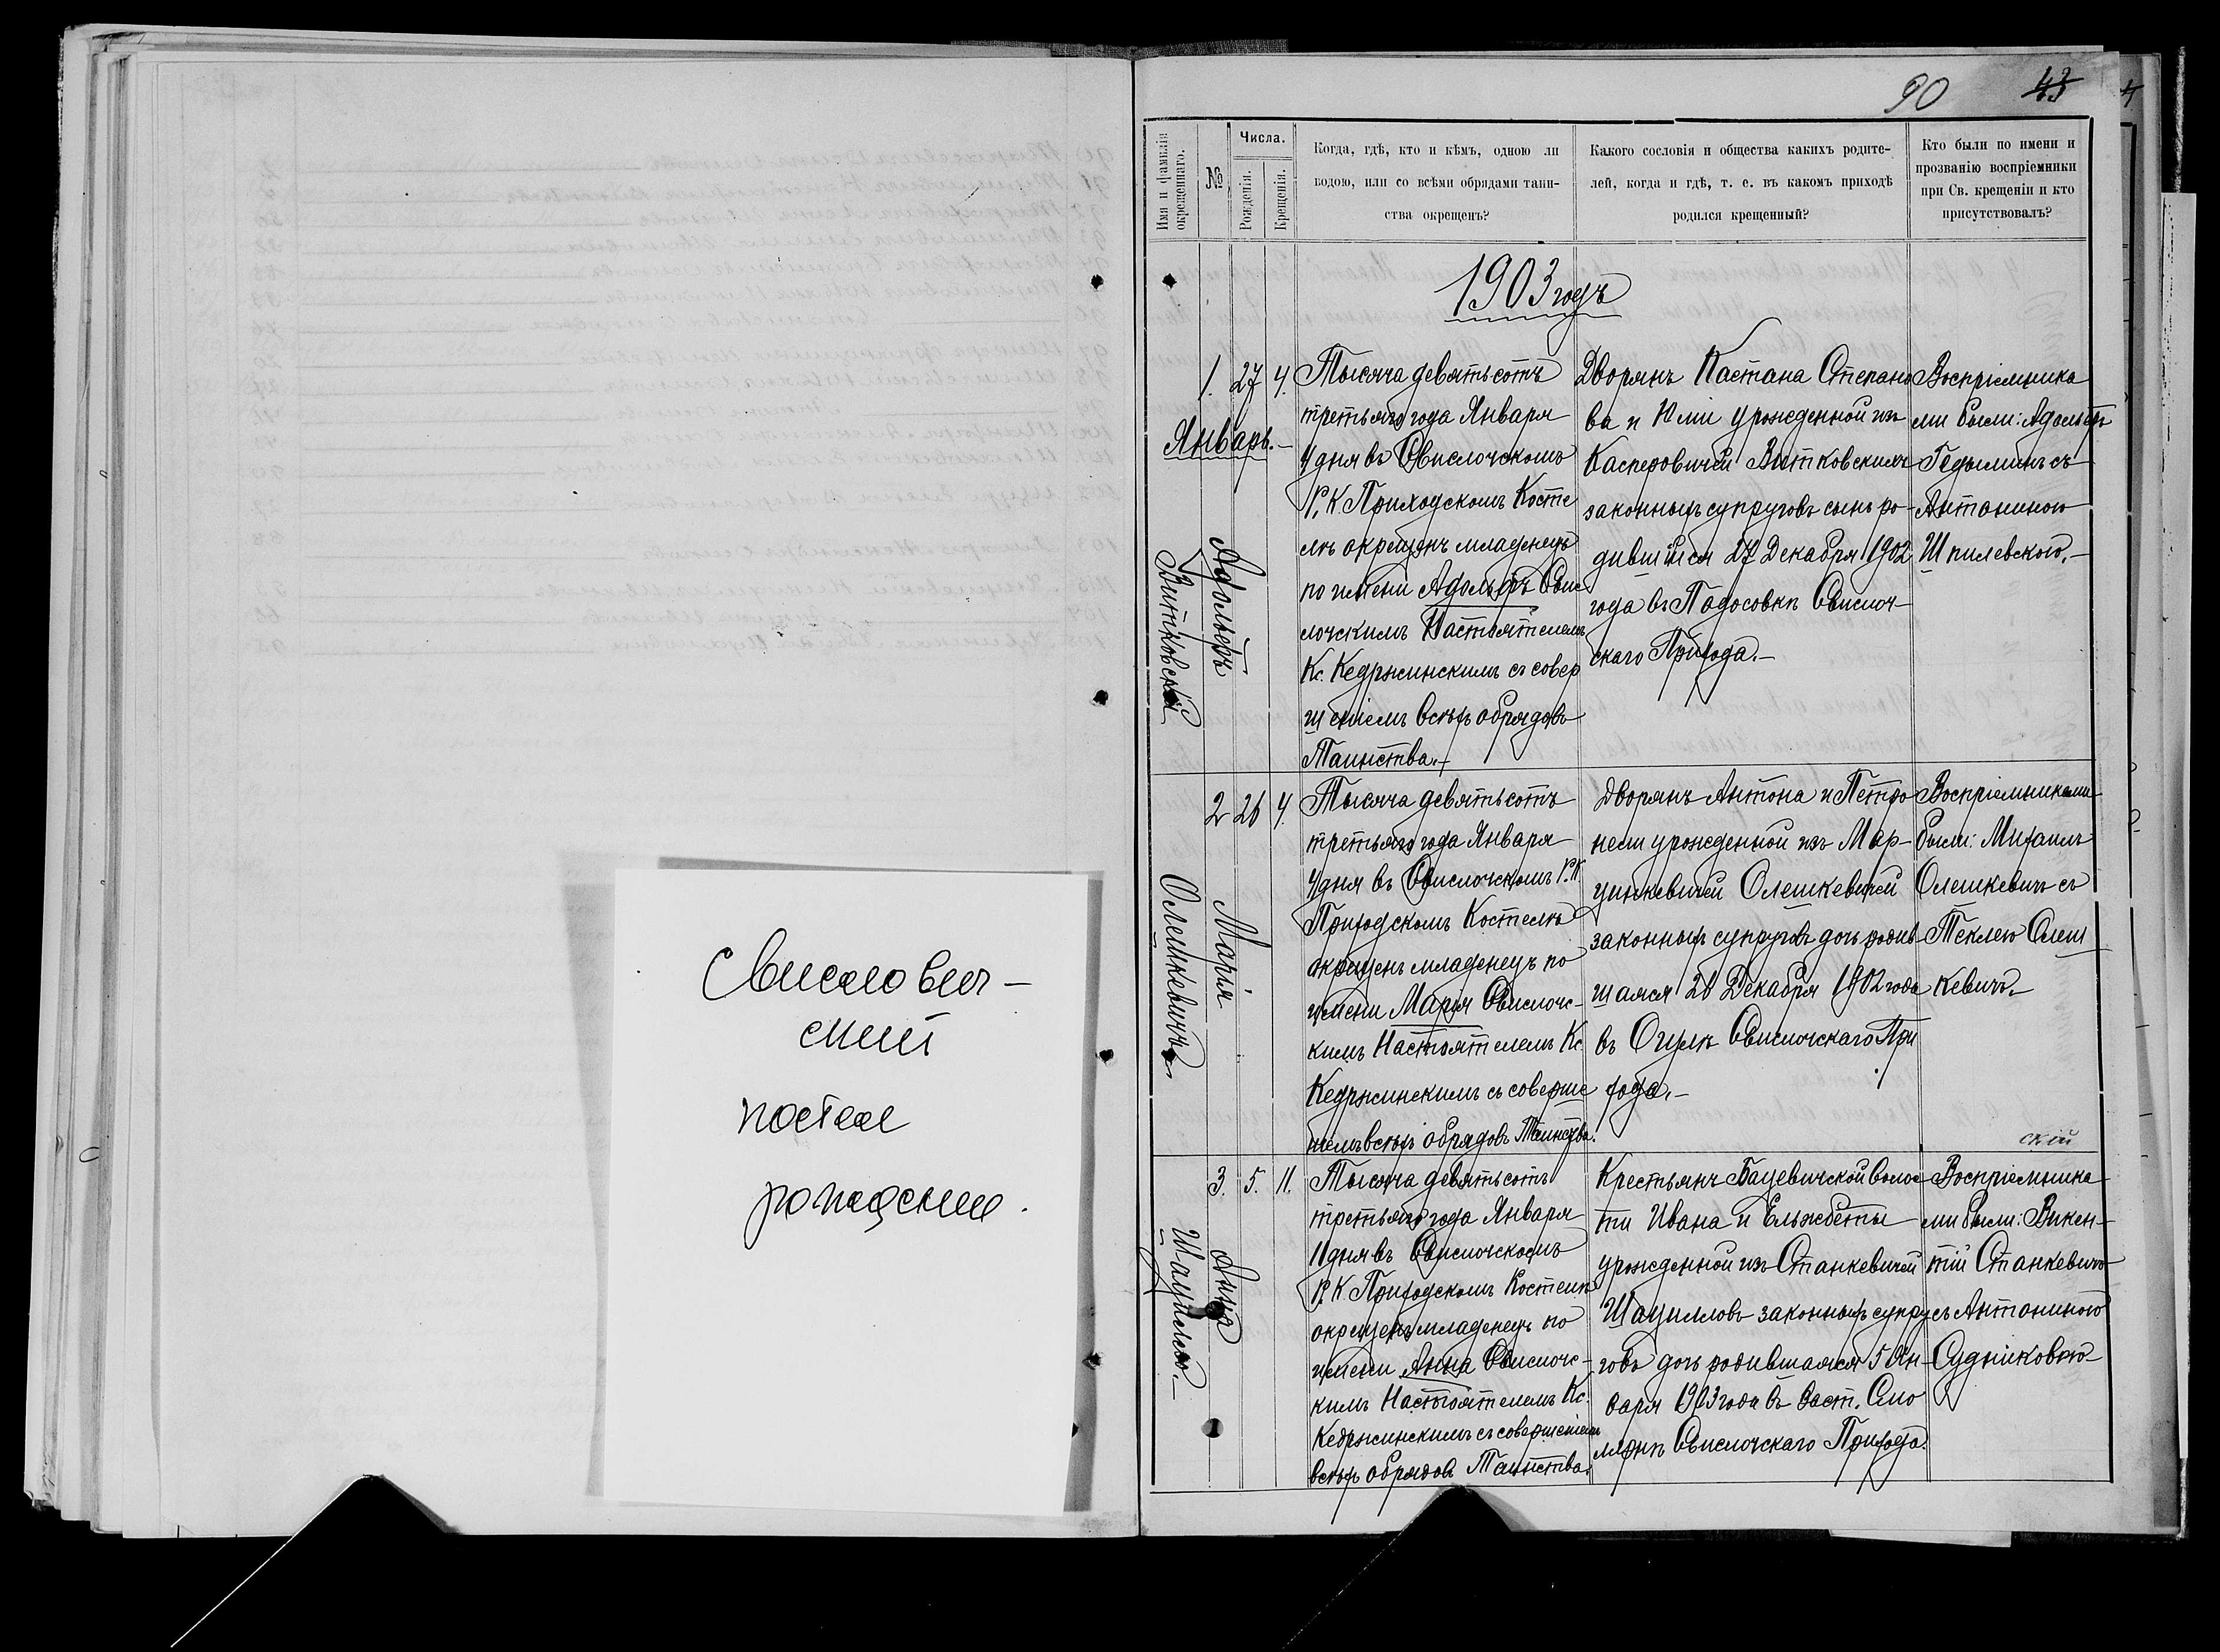 Свислович-
ский
костел
рождение.
90 43
Имя и фамилія окрещеннаго.
№
Числа.
Рожденія.
Крещенія.
Когда, гдѣ, кто и кѣмъ, одною ли
водою, или со всѣми обрядами таин-
ства окрещенъ?
Какого сословія и общества какихъ родите-
лей, когда и гдѣ, т. е. въ какомъ приходѣ
родился крещенный?
Кто были по имени и
прозванію воспріемники
при Св. крещеніи и кто
присутствовалъ?
1903 годъ
Январь.-
Адольфъ
Витковскій
1. 27 4.
Тысяча девятьсотъ
третьяго года Января
4 дня въ Свислочскомъ
Р. К Приходскомъ Косте
лѣ окрещенъ младенецъ
по имени Адольфъ Свис
лочскимъ Настоятелемъ
Кс. Кедржинскимъ съ совер
шеніемъ всѣхъ обрядовъ
Таинства.-
Дворянъ Кастана Степано
ва и Юліи урожденной изъ
Касперовичей Витковскихъ
законныхъ супруговъ сынъ ро-
дившійся 27 Декабря 1902
года въ Подосовкѣ Свислоч-
скаго Прихода.-
Воспріемника
ми были: Адольфъ
Гедыминъ съ
Антониною
Шпилевскою.-
Марія
Олешкевичъ
2 26 4.
Тысяча девятьсотъ
третьяго года Января
4 дня въ Свислочскомъ Р.К.
Приходскомъ Костелѣ
окрещенъ младенецъ по
имени Марія Свислочс-
кимъ Настоятелемъ Кс.
Кедржинскимъ съ соверше
ніемъ всѣхъ обрядовъ Таинства.
Дворянъ Антона и Петро
нели урожденной изъ Мар-
цинкевичей Олешкевичей
законныхъ супруговъ дочь родив-
шаяся 26 Декабря 1902 года
въ Оцулѣ Свислочскаго При
хода.-
Воспріемниками
были: Михаилъ
Олешкевичъ съ
Теклею Олеш
кевичъ.-
скій
Анна
Шацилло.-
3. 5. 11.
Тысяча девятьсотъ
третьяго года Января
11 дня въ Свислочскомъ
Р. К. Приходскомъ Костелѣ
окрещенъ младенецъ по
имени Анна Свислочс-
кимъ Настоятелемъ Кс.
Кедржинскимъ съ совершеніемъ
всѣхъ обрядов Таинства.
Крестьянъ Бацевичской Волос
ти Ивана и Ельжбеты
урожденной изъ Станкевичей
Шацилловъ законныхъ супру
говъ дочь родившаяся 5 Ян-
варя 1903 года въ заст. Смо
лярнѣ Свислочскаго Прихода.
Воспріемника
ми были: Викен-
тій Станкевичъ
съ Антониною
Судниковою